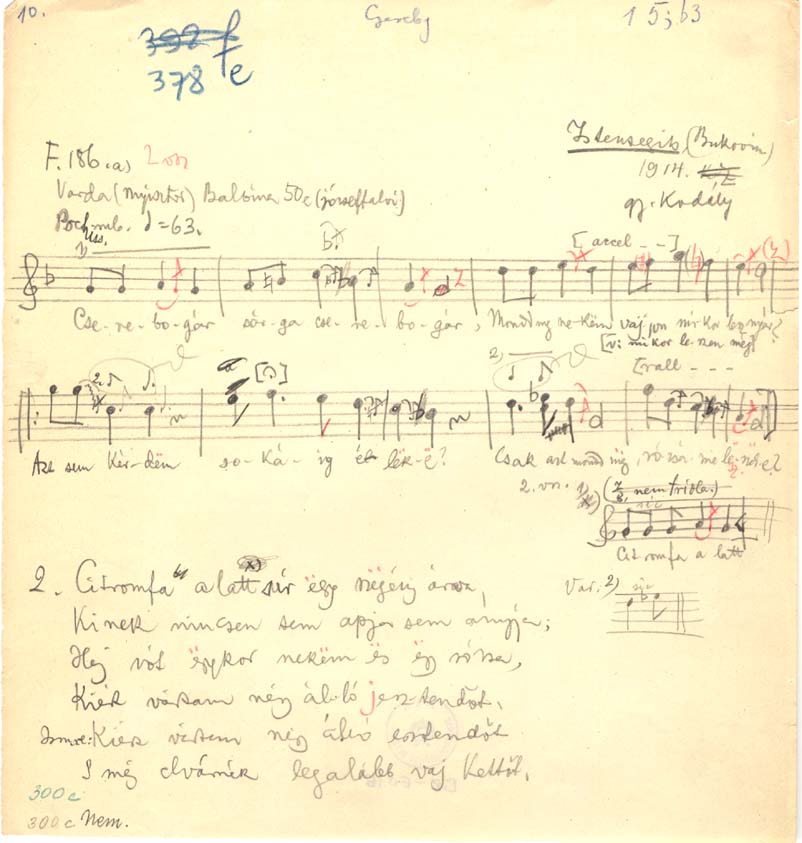 10.
1 5; b3
392 f
378 e
F. 18b. a) 2 vsz
Istensegits (Bukovina)
1914.
gy. Kodály
Varda (Nyisztor) Balbina 50 é (józseffalvi)
Poch. rub. ♩=63.
[accel - - ]
Cse-re-bo-gár sár-ga cse-re-bo-gár, Mondd meg nekëm vaj jon mi-kor lesz nyár?
[v: mikor le-szen még]
2,
[rall - - -
Azt sem kér-dëm so-ká-ig él-lëk-ë?
Csak azt mondd mëg, ró-zsá-mé lë-szëk-ë?
2. vsz. 1) (7/8, nem triola.)
sic
Citromfa a latt
Var: 2) sic
2. Citromfa alatt sír ëgy szëgény árva,
Kinek nincsen sem apja sem ányja;
Hej vót ëgykor nekëm ës ëgy rózsa,
Kiér vártam négy álló jesztendőt.
Ismer: Kiér vártam négy álló esztendőt
S még elvárnék legalább vaj kettőt.
300 c
300 c Nem.